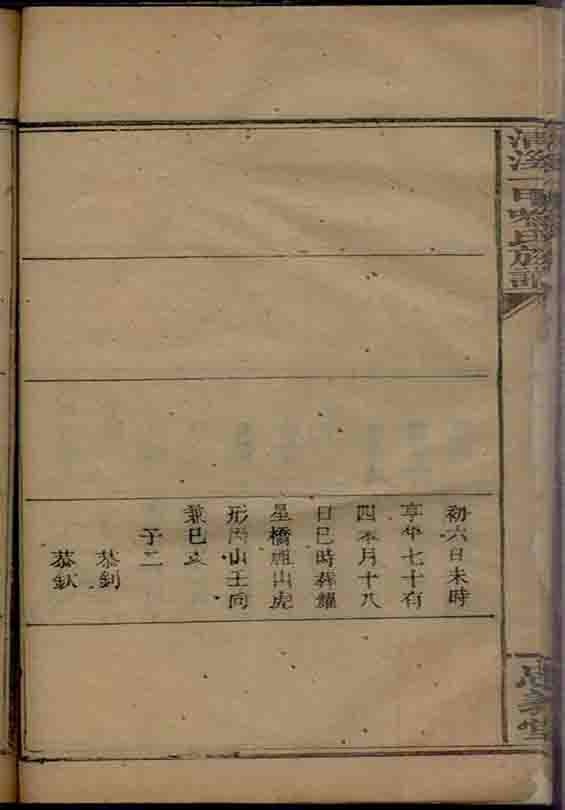 清溪一甲喻氏族譜
初六日未時
享年七十有
四本月十八
日巳時葬羅
星橋雞山虎
形丙山壬向
兼巳亥
子二
恭釗
恭欽
忠孝堂